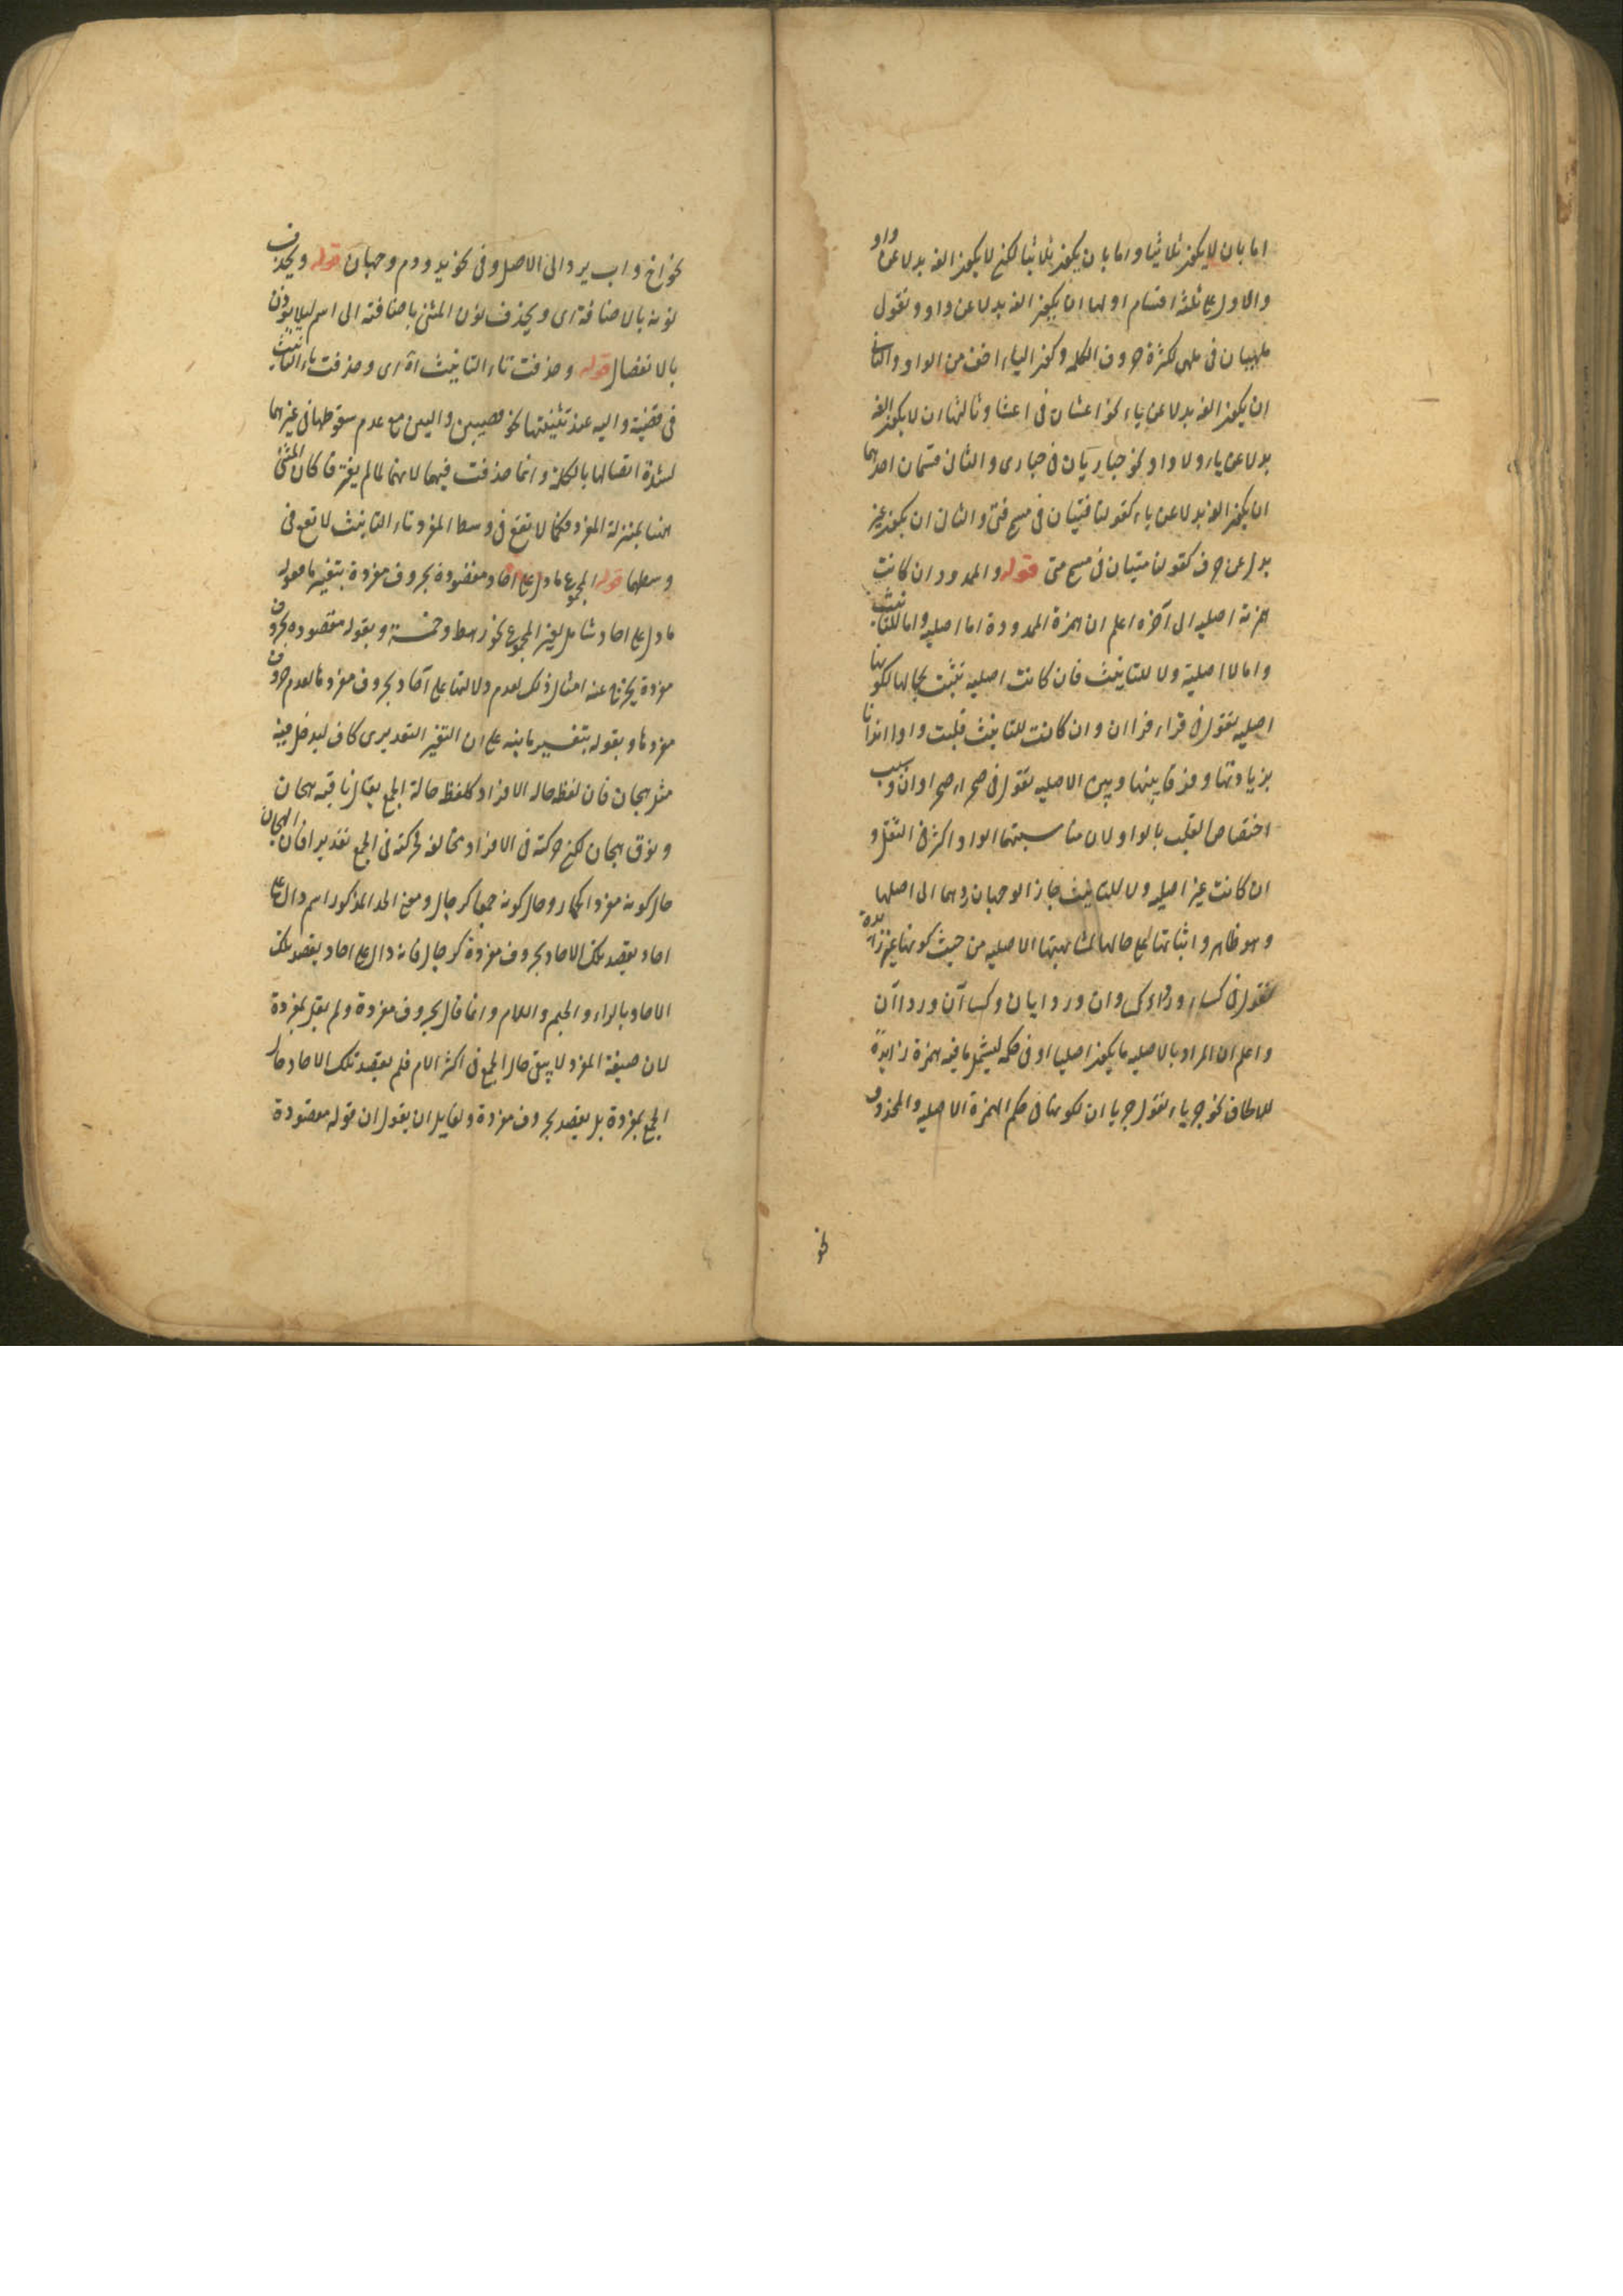 اما بان لا يكون ثلاثيا واما بان يكون ثلاثيا لكن لا يكون الفه بدلا عن واو
والاول على ثلثة اقسام اولها ان يكون الفه بدلا عن واو ونقول
ملهيان فى ملهى لكثرة حروف الكلمة وكون الياء اخف من الواو والثانى
ان يكون الفه بدلا عن ياء نحو اعشان فى اعشا وثالثها ان لا يكون الفه
بدلا عن ياء ولا واو نحو حباريان فى حبارى والثانى قسمان احدهما
ان يكون الفه بدلا عن ياء كقولنا فتيان فى فتى والثانى ان يكون غير
بدل عن حرف كقولنا متيان فى متى قوله والممدود ان كانت
همزته اصلية الى آخره اعلم ان همزة الممدودة اما اصلية واما للتانيث
واما لا اصلية ولا للتانيث فان كانت اصلية تثبت بحالها لكونها
اصلية نقول فى قراء قراان وان كانت للتانيث قلبت واوا ايذانا
بزيادتها وفرقا بينها وبين الاصلية نقول فى صحراء صحراوان وسبب
اختصاص القلب بالواو لان مناسبتها الواو اكثر فى الثقل و
ان كانت غير اصلية ولا للتانيث جاز الوجهان ردها الى اصلها
وهو ظاهر واثباتها على حالها لمشابهتها الاصلية من حيث كونها غير زايدة
نقول فى كساء ورداء كساوان وردايان وكساآن ورداآن
واعلم ان المراد بالاصلية ما يكون اصليا او فى حكمه ليشمل ما فيه همزة زايدة
للالحاق نحو حرباء نقول حرباان لكونها فى حكم الهمزة الاصلية والمحذوف
نحو
نحو اخ واب يرد الى الاصل وفى نحو يد ودم وجهان قوله ويحذف
نونه بالاضافة اى ويحذف نون المثنى باضافته الى اسم ليلا يؤذن
بالانفصال قوله وحذفت تاء التانيث آه اى وحذفت تاء التانيث
فى خصية والية عند تثنيتها نحو خصيين واليين مع عدم سقوطها فى غيرهما
لشدة اتصالها بالكلمة وانما حذفت فيهما لانهما لما لم يفترقا كان المثنى
هنا بمنزلة المفرد فكما لا تقع فى وسط المفرد تاء التانيث لا تقع فى
وسطهما قوله المجموع ما دل على آحاد مقصودة بحروف مفردة بتغيير ما فقوله
ما دل على احاد شامل لغير المجموع نحو رهط وخمسة وبقوله مقصودة بحروف
مفردة يخرج عنه امثال ذلك لعدم دلالتها على آحاد بحروف مفردها لعدم حروف
مفردها وبقوله بتغيير ما ينبه على ان التغيير التقديرى كاف ليدخل فيه
مثل هجان فان لفظه حالة الافراد كلفظه حالة الجمع يقال ناقة هجان
ونوق هجان لكن حركته فى الافراد مخالفة لحركته فى الجمع تقديرا فان الهجان
حال كونه مفردا كحمار وحال كونه جمعا كرجال ومعنى الحد المذكور اسم دال على
احاد يقصد تلك الاحاد بحروف مفردة كرجال فانه دال على احاد يقصد تلك
الاحاد بالراء والجيم واللام وانما قال بحروف مفردة ولم يقل بمفردة
لان صيغة المفرد لا يبقى حال الجمع فى اكثر الامر فلم يقصد تلك الاحاد حال
الجمع بمفردة بل يقصد بحروف مفردة ولقايل ان يقول ان قوله مقصودة